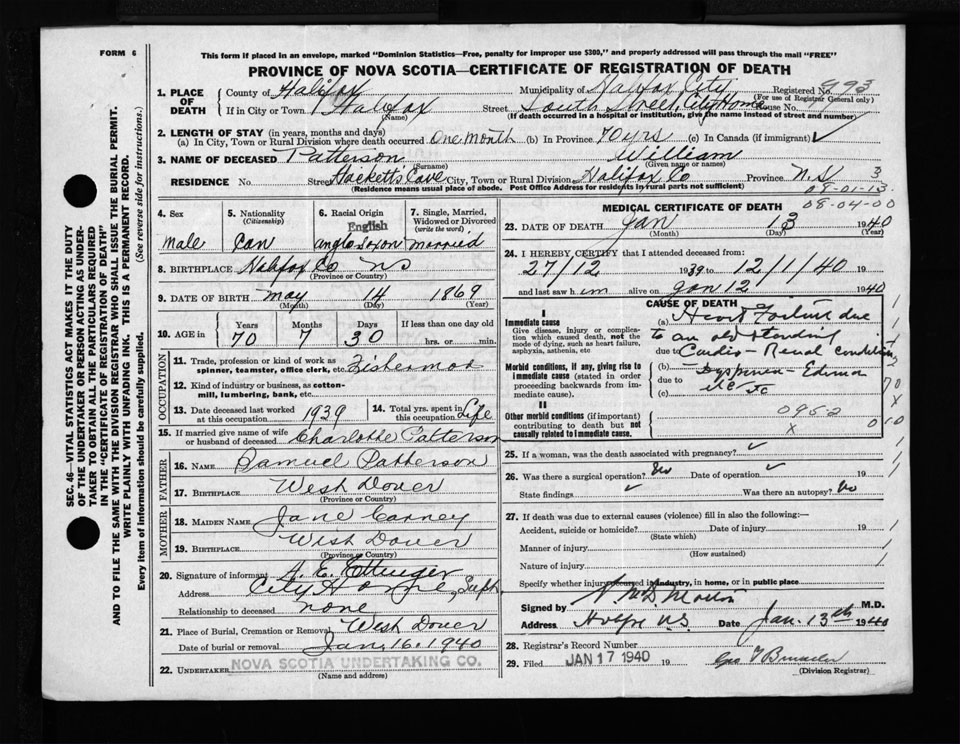 FORM 6
This form if placed in an envelope, marked "Dominion Statistics—Free, penalty for improper use $300," and properly addressed will pass through the mail "FREE"
PROVINCE OF NOVA SCOTIA—CERTIFICATE OF REGISTRATION OF DEATH
SEC. 46—VITAL STATISTICS ACT MAKES IT THE DUTY
OF THE UNDERTAKER OR PERSON ACTING AS UNDER-
TAKER TO OBTAIN ALL THE PARTICULARS REQUIRED
IN THE "CERTIFICATE OF REGISTRATION OF DEATH"
AND TO FILE THE SAME WITH THE DIVISION REGISTRAR WHO SHALL ISSUE THE BURIAL PERMIT.
WRITE PLAINLY WITH UNFADING INK. THIS IS A PERMANENT RECORD.
Every item of information should be carefully supplied. (See reverse side for instructions.)
1. PLACE OF DEATH County of Halifax Municipality of Halifax City Registered No. 993
(For use of Registrar General only)
If in City or Town Halifax Street South Street, City Home House No.
(Name) (If death occurred in a hospital or institution, give the name instead of street and number)
2. LENGTH OF STAY (in years, months and days)
(a) In City, Town or Rural Division where death occurred One Month (b) In Province 70 yrs (c) In Canada (if immigrant) ✓
3. NAME OF DECEASED Patterson William
(Surname) (Given name or names)
RESIDENCE No. Street Hacketts Cove City, Town or Rural Division Halifax Co Province N.S. 3
(Residence means usual place of abode. Post Office Address for residents in rural parts not sufficient) 09-01-13
08-04-00
4. Sex 5. Nationality (Citizenship) 6. Racial Origin 7. Single, Married, Widowed or Divorced (write the word)
English
male Can anglo saxon married
8. BIRTHPLACE Halifax Co NS
(Province or Country)
9. DATE OF BIRTH May 14 1869
(Month) (Day) (Year)
10. AGE in Years Months Days If less than one day old
70 7 30 hrs. or min.
OCCUPATION
11. Trade, profession or kind of work as
spinner, teamster, office clerk, etc. Fisherman
12. Kind of industry or business, as cotton-
mill, lumbering, bank, etc.
13. Date deceased last worked at this occupation 1939 14. Total yrs. spent in this occupation Life
15. If married give name of wife
or husband of deceased Charlotte Patterson
FATHER
16. NAME Samuel Patterson
17. BIRTHPLACE West Dover
(Province or Country)
MOTHER
18. MAIDEN NAME Jane Carney
19. BIRTHPLACE West Dover
(Province or Country)
20. Signature of informant A. E. Ettinger
Address City Home, Supt.
Relationship to deceased none
21. Place of Burial, Cremation or Removal West Dover
Date of burial or removal Jan. 16. 1940
22. UNDERTAKER NOVA SCOTIA UNDERTAKING CO.
(Name and address)
MEDICAL CERTIFICATE OF DEATH
23. DATE OF DEATH Jan 13 1940
(Month) (Day) (Year)
24. I HEREBY CERTIFY that I attended deceased from:
27/12 1939 to 12/1/40 19
and last saw him alive on Jan 12 1940
CAUSE OF DEATH
I
Immediate cause
Give disease, injury or complica-
tion which caused death, not the
mode of dying, such as heart failure,
asphyxia, asthenia, etc
(a) Heart Failure due
to an old standing
due to Cardio-Renal condition
Morbid conditions, if any, giving rise to
immediate cause (stated in order
proceeding backwards from im-
mediate cause).
(b) Dyspnoea - Edema
due to
(c)
II
Other morbid conditions (if important)
contributing to death but not
causally related to immediate cause.
095a
x
25. If a woman, was the death associated with pregnancy? ✓
26. Was there a surgical operation? No Date of operation ✓ 19
State findings ✓ Was there an autopsy? No
27. If death was due to external causes (violence) fill in also the following:—
Accident, suicide or homicide? Date of injury 19
(State which)
Manner of injury
(How sustained)
Nature of injury
Specify whether injury occurred in industry, in home, or in public place
Signed by M.D.
Address Hlfx N.S. Date Jan. 13th 1940
28. Registrar's Record Number
29. Filed JAN 17 1940 19
(Division Registrar)